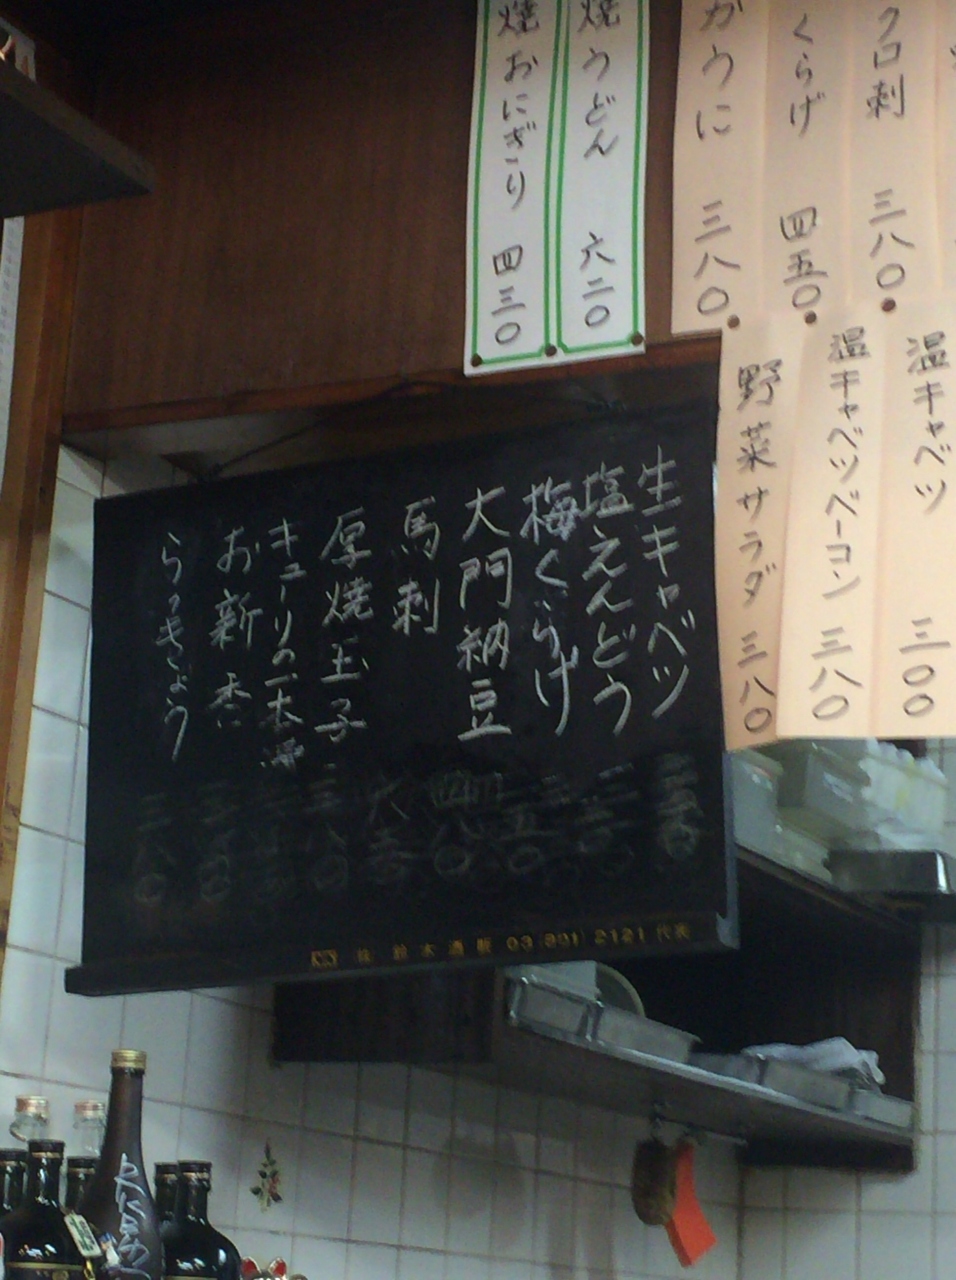 クロ刺 三八〇
くらげ 四五〇
がうに 三八〇
焼うどん 六二〇
焼おにぎり 四三〇
温キャベツ 三〇〇
温キャベツベーコン 三八〇
野菜サラダ 三八〇
生キャベツ
塩えんどう
梅くらげ
大門納豆
馬刺
厚焼玉子 三八〇
キューリの一本漬
お新香
らっきょう
㈱鈴木酒販 03(801)2121代表